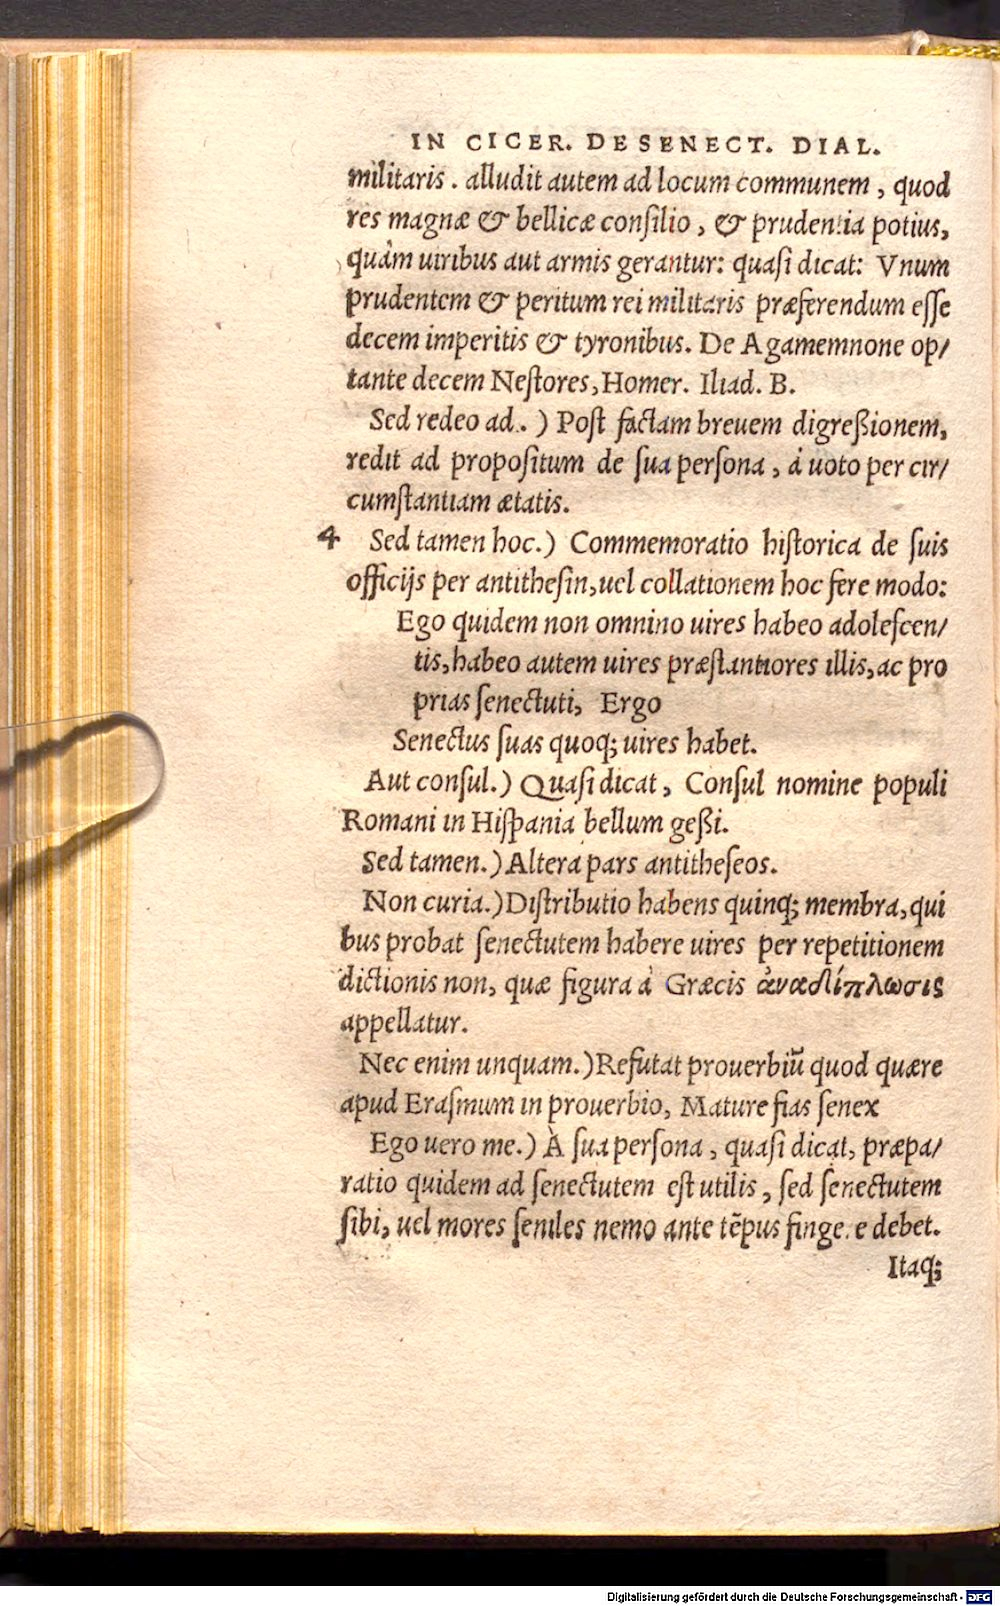 IN CICER. DE SENECT. DIAL.
militaris. alludit autem ad locum communem, quod
res magnæ & bellicæ consilio, & prudentia potius,
quàm uiribus aut armis gerantur: quasi dicat: Vnum
prudentem & peritum rei militaris præferendum esse
decem imperitis & tyronibus. De Agamemnone op/
tante decem Nestores, Homer. Iliad. B.
Sed redeo ad. ) Post factam breuem digreßionem,
redit ad propositum de sua persona, à uoto per cir/
cumstantiam ætatis.
4 Sed tamen hoc.) Commemoratio historica de suis
officijs per antithesin, uel collationem hoc fere modo:
Ego quidem non omnino uires habeo adolescen/
tis, habeo autem uires præstantiores illis, ac pro
prias senectuti, Ergo
Senectus suas quoq; uires habet.
Aut consul.) Quasi dicat, Consul nomine populi
Romani in Hispania bellum geßi.
Sed tamen.) Altera pars antitheseos.
Non curia.) Distributio habens quinq; membra, qui
bus probat senectutem habere uires per repetitionem
dictionis non, quæ figura à Græcis ἀναδίπλωσις
appellatur.
Nec enim unquam.) Refutat prouerbiū quod quære
apud Erasmum in prouerbio, Mature fias senex
Ego uero me.) À sua persona, quasi dicat, præpa/
ratio quidem ad senectutem est utilis, sed senectutem
sibi, uel mores seniles nemo ante tēpus fingere debet.
Itaq;
Digitalisierung gefördert durch die Deutsche Forschungsgemeinschaft - DFG